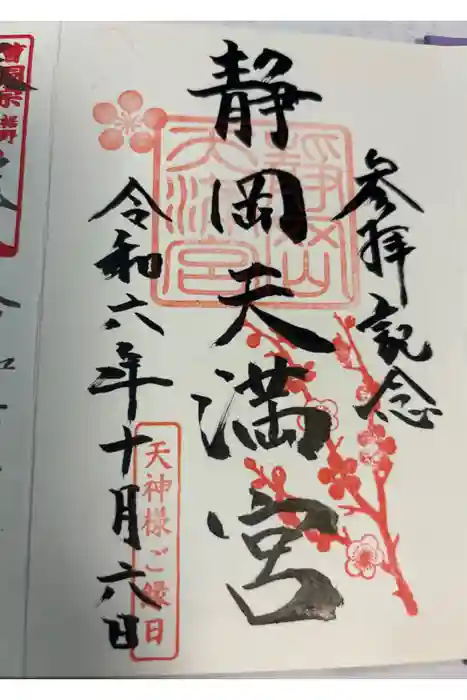 参拝記念
静岡天満宮
静岡天満宮
令和六年十月六日
天神様ご縁日